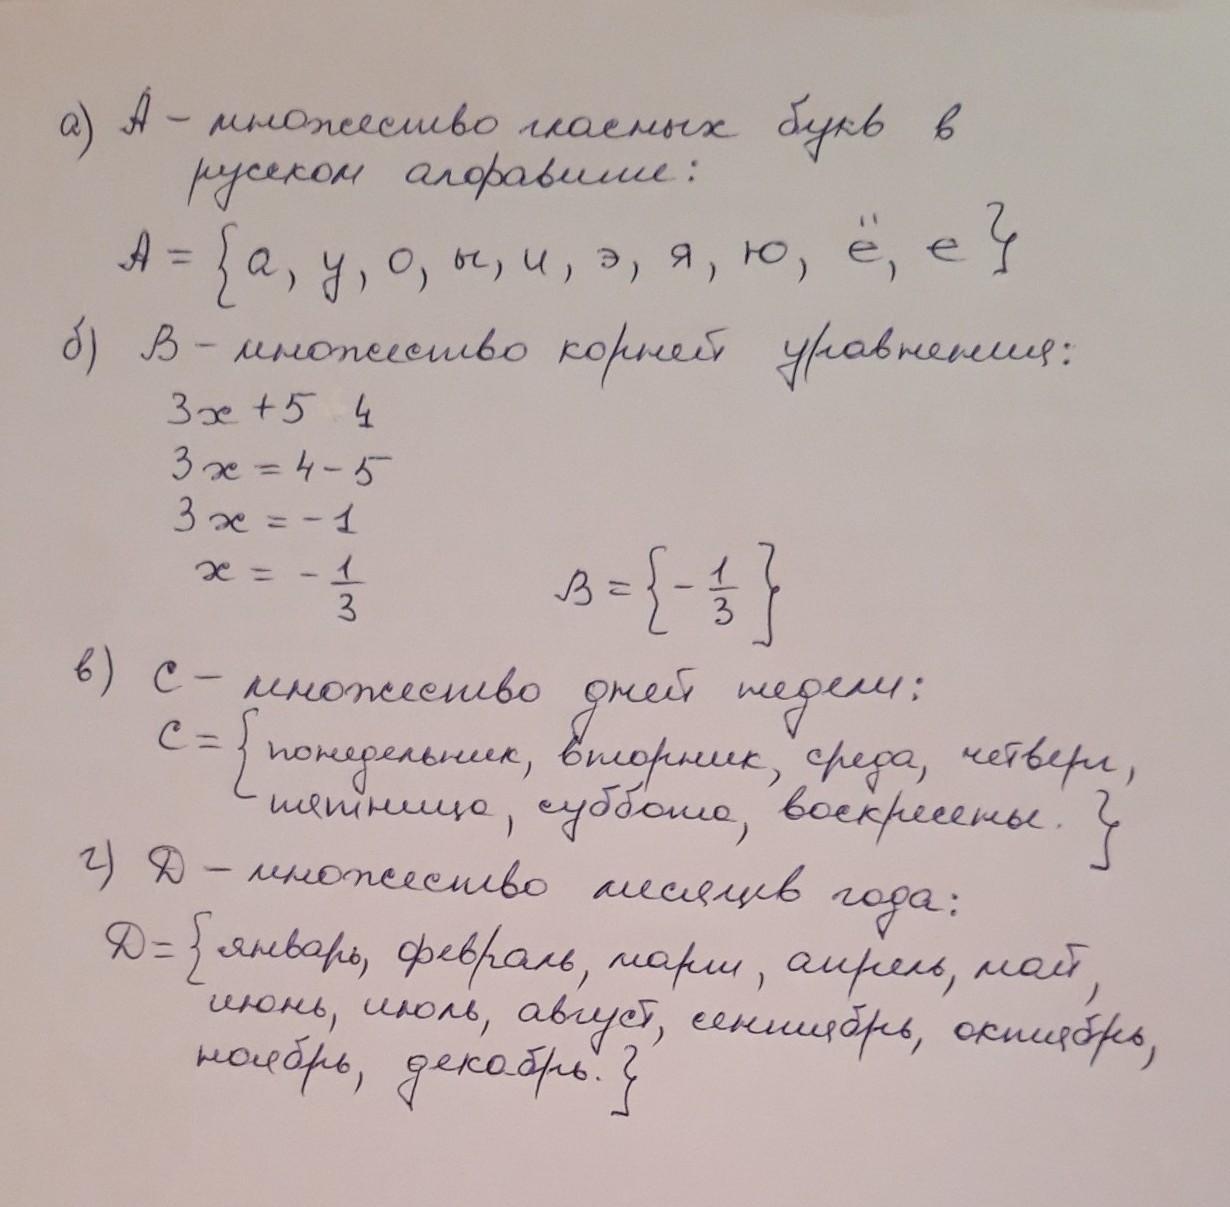 а) А – множество гласных букв в
русском алфавите:
А = {а, у, о, ы, и, э, я, ю, ё, е}
б) В – множество корней уравнения:
3x + 5 4
3x = 4 – 5
3x = –1
x = –1/3 В = {–1/3}
в) С – множество дней недели:
С = {понедельник, вторник, среда, четверг,
пятница, суббота, воскресенье.}
г) Д – множество месяцев года:
Д = {январь, февраль, март, апрель, май,
июнь, июль, август, сентябрь, октябрь,
ноябрь, декабрь.}